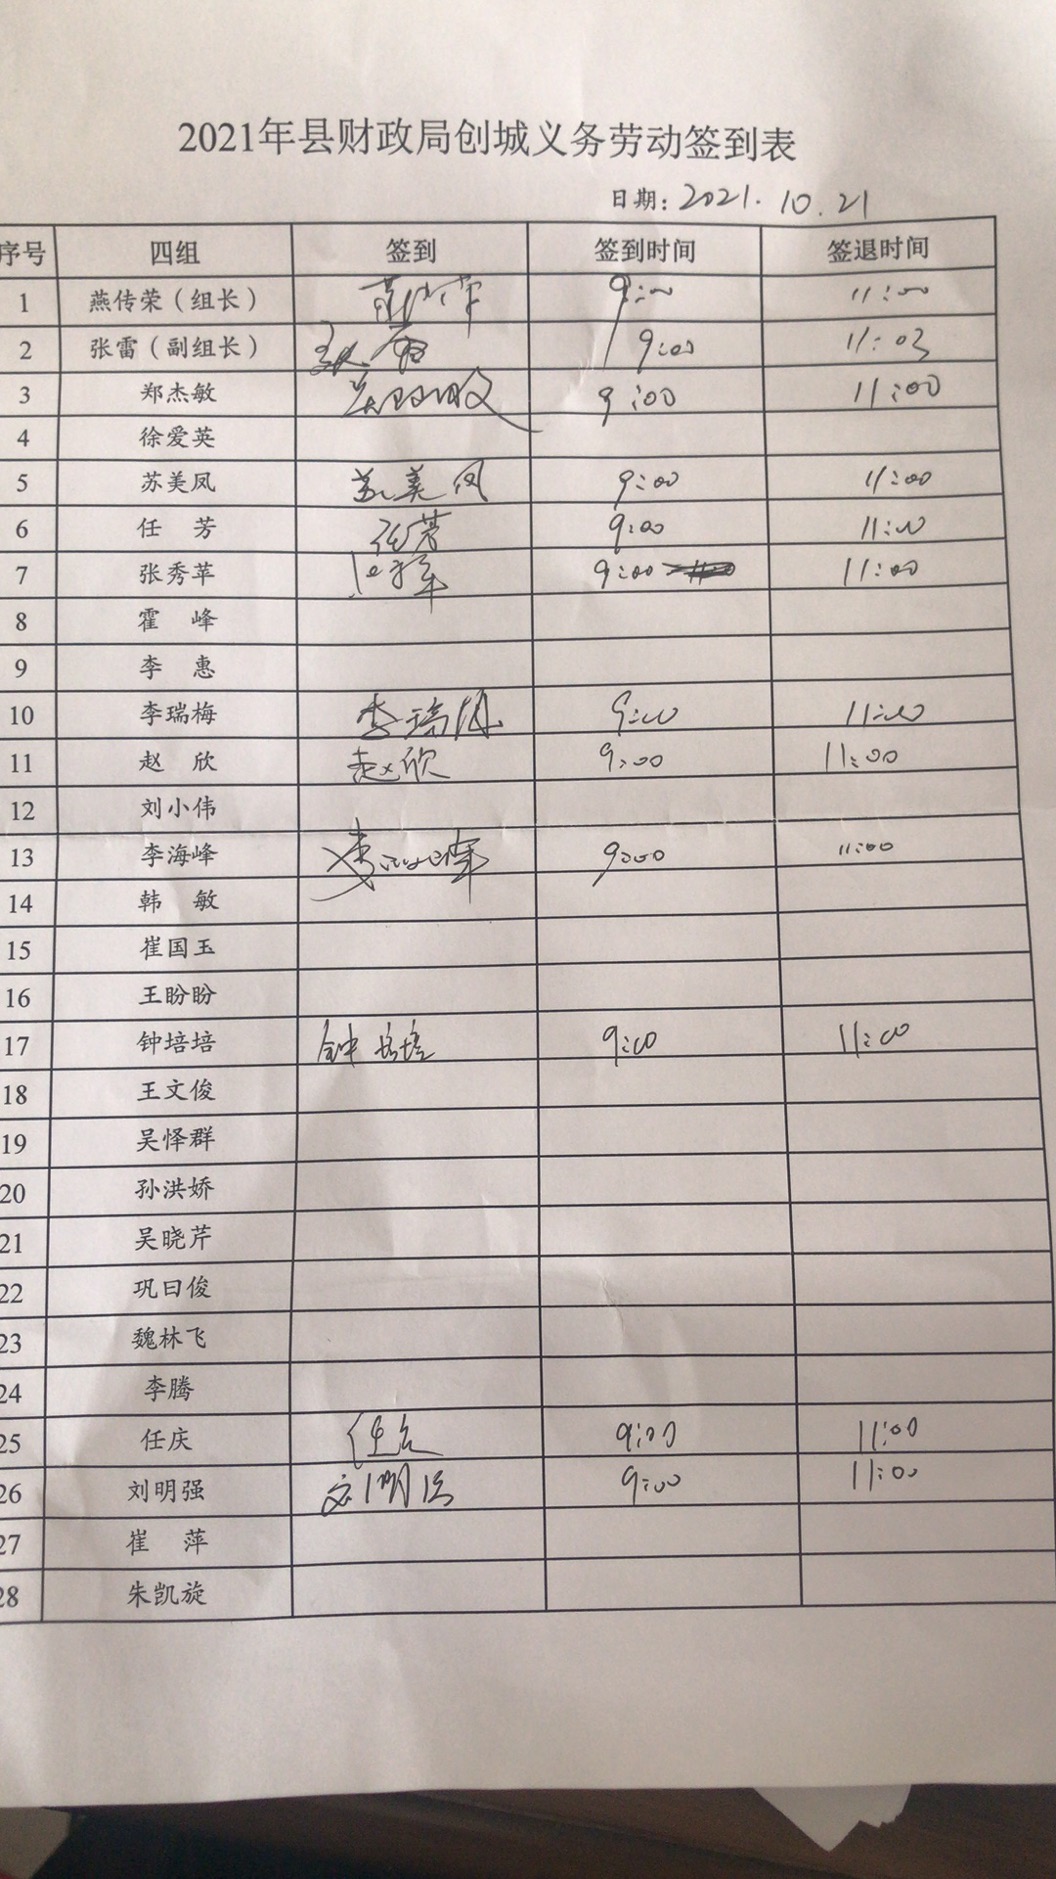 2021年县财政局创城义务劳动签到表
日期: 2021.10.21
序号 四组 签到 签到时间 签退时间
1 燕传荣（组长） 9:00 11:00
2 张雷（副组长） 张雷 9:00 11:03
3 郑杰敏 9:00 11:00
4 徐爱英
5 苏美凤 苏美凤 9:00 11:00
6 任 芳 任芳 9:00 11:00
7 张秀苹 9:00 11:00
8 霍 峰
9 李 惠
10 李瑞梅 李瑞梅 9:00 11:00
11 赵 欣 赵欣 9:00 11:00
12 刘小伟
13 李海峰 李海峰 9:00 11:00
14 韩 敏
15 崔国玉
16 王盼盼
17 钟培培 钟培培 9:00 11:00
18 王文俊
19 吴怿群
20 孙洪娇
21 吴晓芹
22 巩曰俊
23 魏林飞
24 李腾
25 任庆 任庆 9:00 11:00
26 刘明强 刘明强 9:00 11:00
27 崔 萍
28 朱凯旋